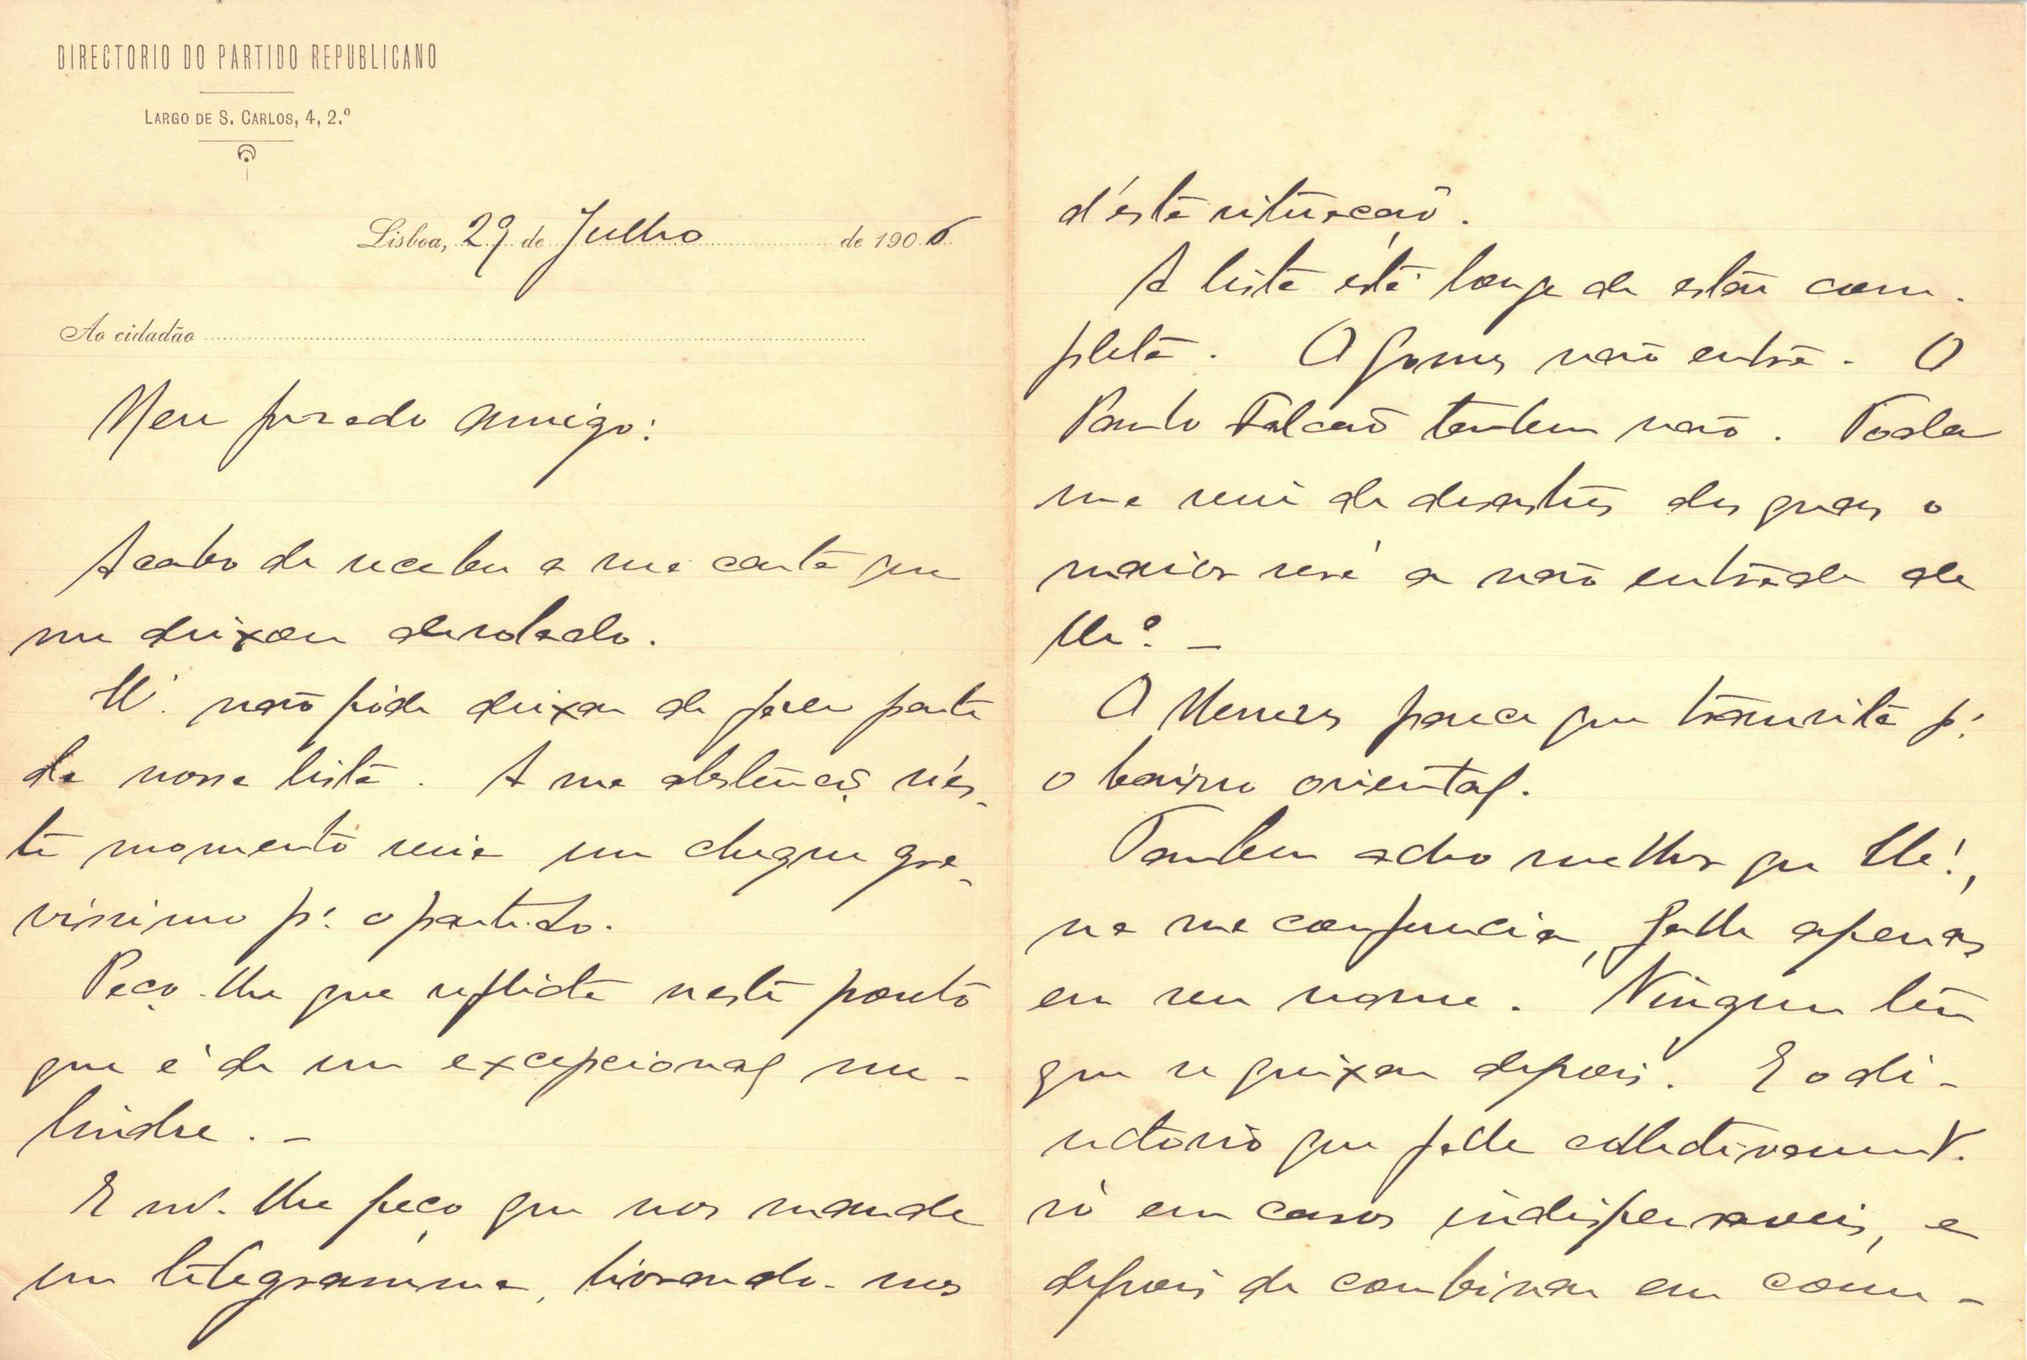 DIRECTORIO DO PARTIDO REPUBLICANO
LARGO DE S. CARLOS, 4, 2.º
Lisboa, 29 de Julho de 1906
Ao cidadão
Meu presado Amigo:
Acabo de receber a sua carta que
me deixou desolado.
V. não póde deixar de fazer parte
da nossa lista. A sua abstenção n'es-
te momento seria um cheque gra-
vissimo p.ª o partido.
Peço-lhe que reflicta neste ponto
que é de um excepcional me-
lindre. —
E lhe peço que nos mande
um telegramma, livrando-nos
d'esta situação.
A lista está longe de estar com-
pleta. O Gomes não entra. O
Paulo Falcão tambem não. Toda
uma serie de desastres dos quaes o
maior será a não entrada de
O Menezes parece que transita p.ª
o bairro oriental.
Tambem acho melhor que
na sua conferencia, falle apenas
em seu nome. Ninguem tem
que se queixar depois. E o di-
rectorio que falle collectivament.
só em casos indispensaveis, e
depois de combinar em com-